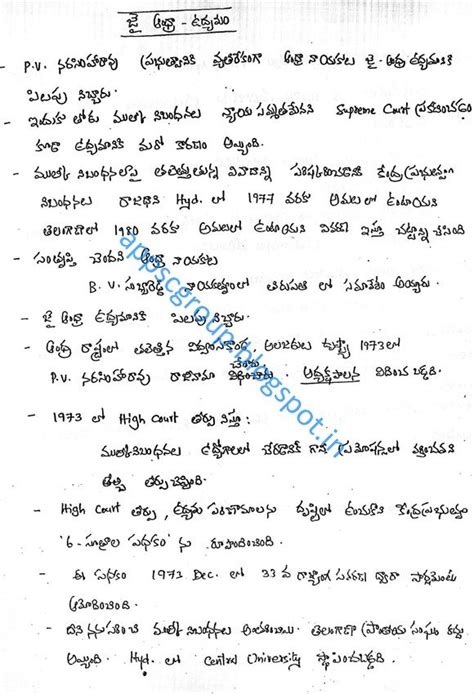 జై ఆంధ్రా - ఉద్యమం
- P.V. నరసింహారావు ప్రభుత్వానికి వ్యతిరేకంగా ఆంధ్రా నాయకులు జై-ఆంధ్ర ఉద్యమానికి
పిలుపు నిచ్చారు.
- ఇదుకు తోడు ముల్కీ నిబంధనలు న్యాయ సమ్మతమేనని Supreme Court ప్రకటించడం
కూడా ఉద్యమానికి మరో కారణం అయ్యింది.
- ముల్కీ నిబంధనలపై తలెత్తుతున్న వివాదాన్ని పరిష్కరించడానికి కేంద్ర ప్రభుత్వం
నిబంధనలు రాజధాని Hyd. లో 1977 వరకు అమలులో ఉండాయని
తెలంగాణాలో 1980 వరకు అమలులో ఉండాయని వివరణ ఇస్తూ చట్టాన్ని చేసింది
- సంతృప్తి చెందని ఆంధ్రా నాయకులు
B. V. సుబ్బారెడ్డి నాయకత్వంలో తిరుపతి లో సమావేశం అయ్యారు.
- జై ఆంధ్రా ఉద్యమానికి పిలుపు నిచ్చారు.
- ఆంధ్ర రాష్ట్రంలో తలెత్తిన విధ్వంసకాండ, అలజడుల దృష్ట్యా 1973లో
చేయగా
P.V. నరసింహారావు రాజీనామా అధ్యక్షపాలన విధించ బడ్డది.
- 1973 లో High Court తీర్పు నిస్తూ:
ముల్కీ నిబంధనలు ఉద్యోగాలలో చేరడానికే గానీ ప్రమోషన్లలో వర్తించవని
తేల్చి తీర్పు చెప్పింది.
- High Court తీర్పు, ఉద్యమ పరిణామాలను దృష్టిలో ఉంచుకొని కేంద్రప్రభుత్వం
'6-సూత్రాల పథకం' ను రూపొందించింది.
- ఈ పథకం 1973 Dec. లో 33 వ రాజ్యాంగ సవరణ ద్వారా పార్లమెంటు
ఆమోదించింది.
- దీని ననుసరించి ముల్కీ నిబంధనలు అంతరించాయి. తెలంగాణా ప్రాంతీయ సంఘం రద్దు
అయ్యింది. Hyd. లో Central University స్థాపించబడ్డది.
appscgroup.blogspot.in